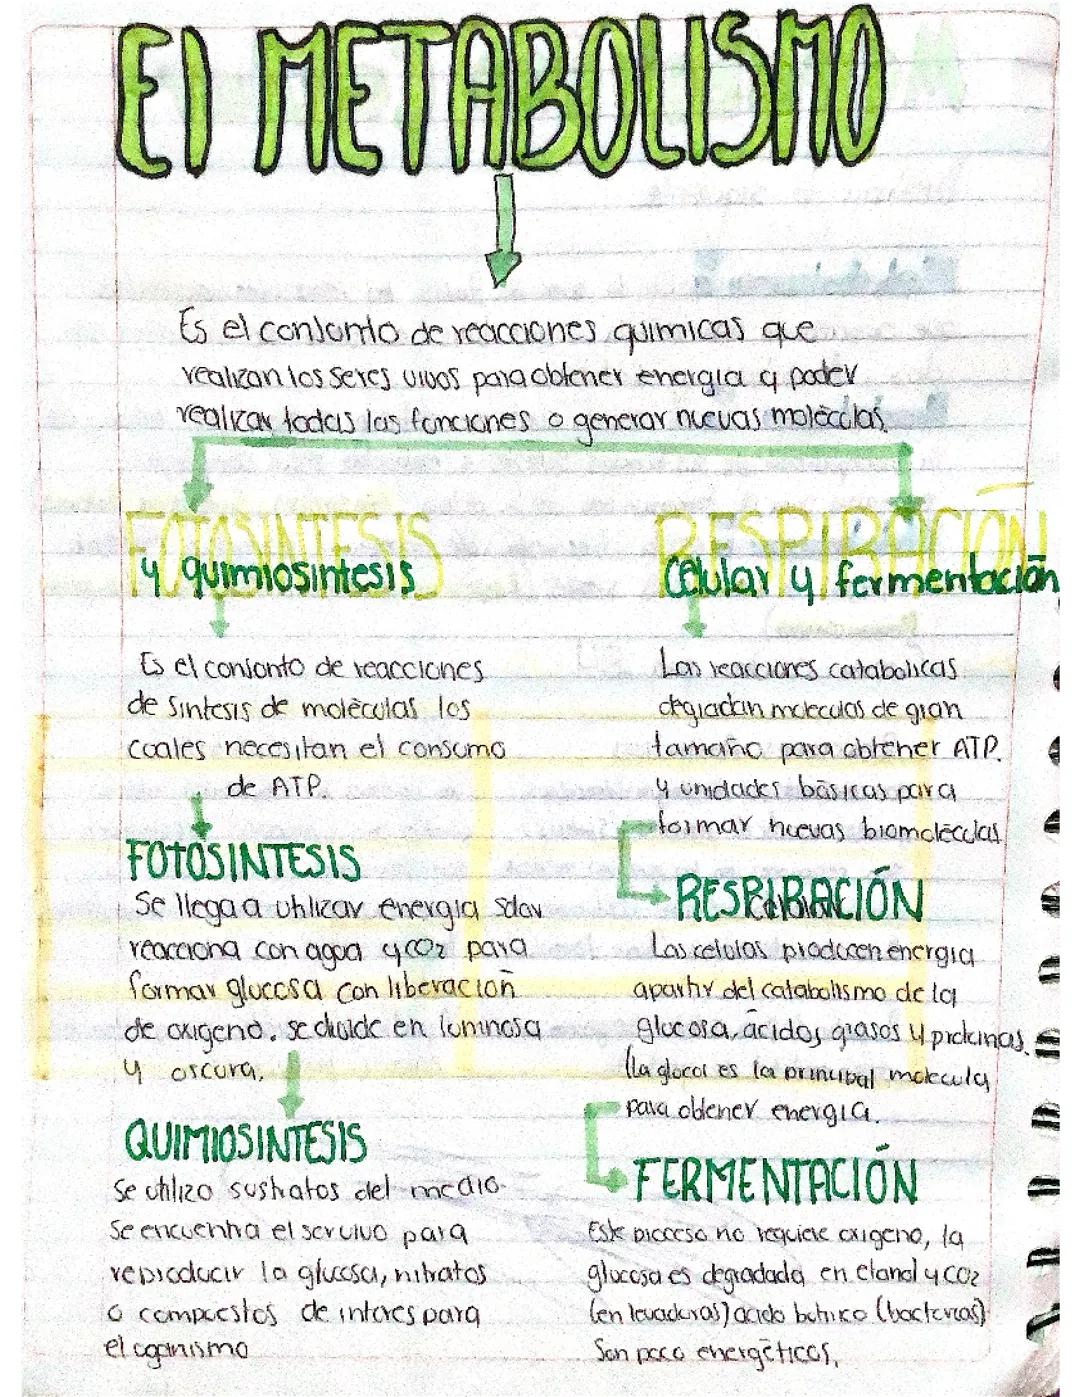 El METABOLISMO
Es el conjunto de reacciones quimicas que
realizan los seres vivos para obtener energia y poder
realizar todas las funciones o generar nuevas molèculas.
FOTOSINTESIS
y quimiosintesis
Es el conjunto de reacciones
de sintesis de molèculas los
cuales necesitan el consumo
de ATP.
FOTOSINTESIS
Se llega a utilizar energia solar
reacciona con agua y CO2 para
formar glucosa con liberacion
de oxigeno. se divide en luminosa
y oscura.
QUIMIOSINTESIS
Se utilizo sustratos del medio
Se encuentra el ser vivo para
reproducir la glucosa, nitratos
o compuestos de interes para
el oganismo
RESPIRACION
Celular y fermentación
Las reacciones catabolicas
degradan moleculas de gran
tamaño para obtener ATP.
y unidades básicas para
formar nuevas biomolèculas
RESPIRACIÓN
Celular
Las celulas producen energia
apartir del catabolismo de la
glucosa, ácidos grasos y proteinas.
(la glucos es la principal molecula
para obtener energia.
FERMENTACIÓN
Este proceso no requiere oxigeno, la
glucosa es degradada en etanol y CO2
(en levaduras) acido butirico (bacterias)
Son poco energéticos.